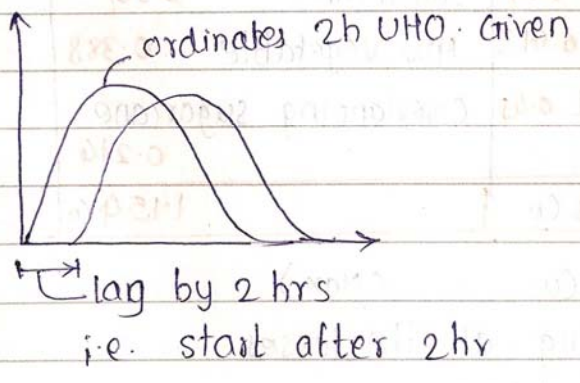 ordinates 2h UHO. Given
lag by 2 hrs
i.e. start after 2hr